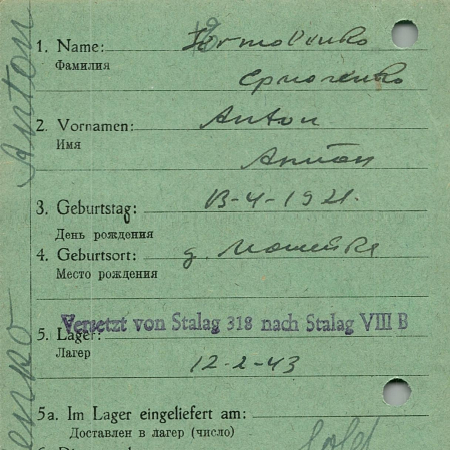 1. Name:
Фамилия
2. Vornamen: Anton
Имя
Антон
3. Geburtstag: 13-4-1921.
День рождения
4. Geburtsort: д.
Место рождения
Versetzt von Stalag 318 nach Stalag VIII B
5. Lager:
Лагер 12-2-43
5a. Im Lager eingeliefert am:
Доставлен в лагер (число)
Anton